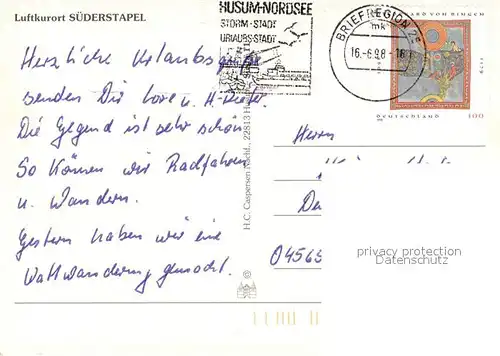 Luftkurort SÜDERSTAPEL
HUSUM-NORDSEE
STORM-STADT
URLAUBSSTADT
BRIEFREGION 25
mk
16.-6.98-16
DEUTSCHLAND
100
Herzliche Urlaubsgrüße
senden Dir Lore u. H-
Die Gegend ist sehr schön
So können wir Radfahren
u. Wandern.
Gestern haben wir eine
Wattwanderung gemacht.
H.C. Caspersen Nachf., 22813
Herrn
De
04565
privacy protection
Datenschutz